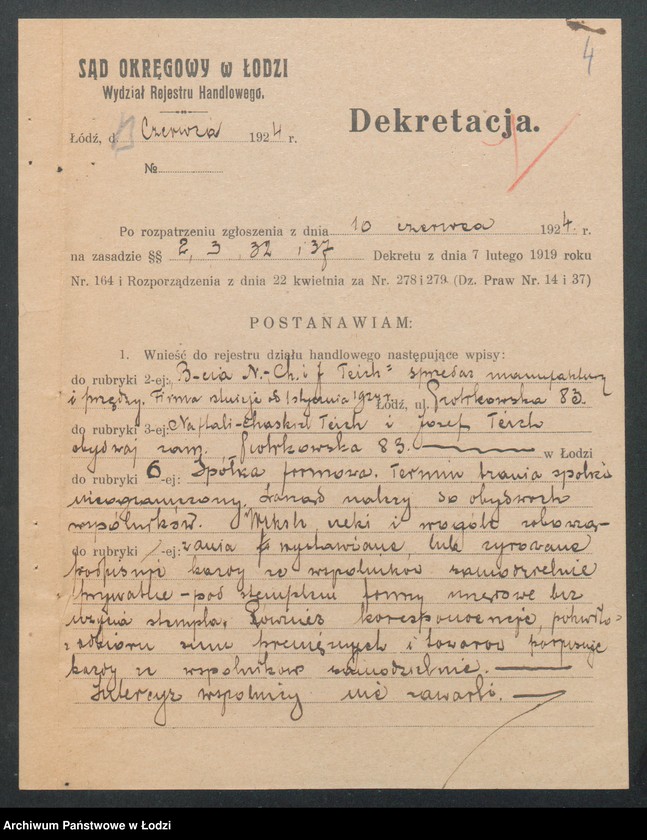 4
SĄD OKRĘGOWY w ŁODZI
Wydział Rejestru Handlowego.
Dekretacja.
Łódź, d. 13 Czerwca 1924 r.
№
Po rozpatrzeniu zgłoszenia z dnia 10 czerwca 1924 r.
na zasadzie §§ 2, 3 32 i 37 Dekretu z dnia 7 lutego 1919 roku
Nr. 164 i Rozporządzenia z dnia 22 kwietnia za Nr. 278 i 279. (Dz. Praw Nr. 14 i 37)
POSTANAWIAM:
1. Wnieść do rejestru działu handlowego następujące wpisy:
do rubryki 2-ej: B-cia N.-Ch. i J Teich" sprzedaż manufaktury
i przędzy. Firma istnieje od 1 stycznia 1924 r. Łódź, ul. Piotrkowska 83.
do rubryki 3-ej: Naftali-Chaskiel Teich i Josef Teich
obydwaj zam. Piotrkowska 83. w Łodzi
do rubryki 6-ej: Spółka firmowa. Termin trwania spółki
nieograniczony. Zarząd należy do obydwóch
wspólników. Weksle, czeki i wogóle zobowią-
do rubryki -ej: zania wystawiane, lub żyrowane
podpisuje każdy ze wspólników samodzielnie
prywatnie - pod stemplem firmy
użycia stempla. Również korespondencję, pokwito-
z odbioru sum pieniężnych i towarów podpisuje
każdy ze wspólników samodzielnie.
Intercyz wspólnicy nie zawarli.
Archiwum Państwowe w Łodzi